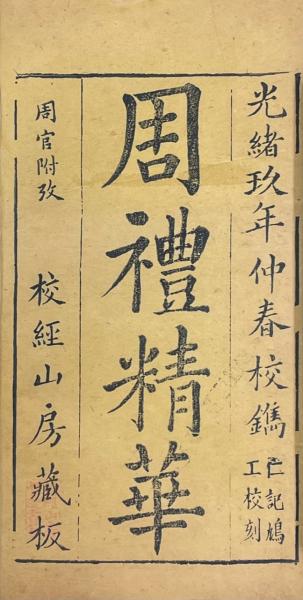 光緒玖年仲春校鐫
仁記鳩
工校刻
周禮精華
周官附攷
校經山房藏板